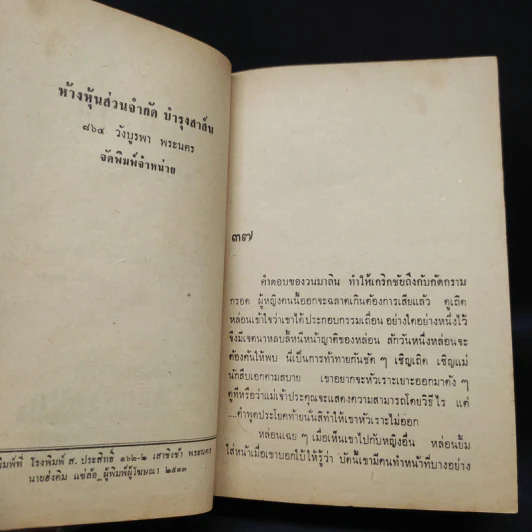 ห้างหุ้นส่วนจำกัด บำรุงสาส์น
๘๖๔ วังบูรพา พระนคร
จัดพิมพ์จำหน่าย
พิมพ์ที่ โรงพิมพ์ ส. ประสิทธิ์ ๑๖๒-๒ เสาชิงช้า พระนคร
นายฮังคิม แซ่ล้อ ผู้พิมพ์ผู้โฆษณา ๒๕๑๓
๓๗
คำตอบของวนมาลิน ทำให้เกริกชัยถึงกับกัดกราม
กรอด ผู้หญิงคนนี้ออกจะฉลาดเกินต้องการเสียแล้ว ดูเถิด
หล่อนเข้าใจว่าเขาได้ประกอบกรรมเถื่อน อย่างใดอย่างหนึ่งไว้
จึงมีเจตนาหลบลี้หนีหน้าญาติของหล่อน สักวันหนึ่งหล่อนจะ
ต้องค้นให้พบ นี่เป็นการท้าทายกันชัด ๆ เชิญเถิด เชิญแม่
นักสืบเอกตามสบาย เขาอยากจะหัวเราะเยาะออกมาดัง ๆ
ดูทีหรือว่าแม่เจ้าประคุณจะแสดงความสามารถโดยวิธีไร แต่
....คำพูดประโยคท้ายนั่นสิทำให้เขาหัวเราะไม่ออก
หล่อนเฉย ๆ เมื่อเห็นเขาไปกับหญิงอื่น หล่อนยิ้ม
ใส่หน้าเมื่อเขาบอกใบ้ให้รู้ว่า บัดนี้เขามีคนทำหน้าที่บางอย่าง